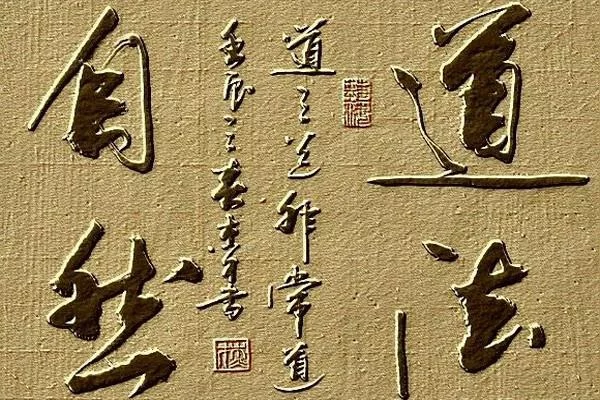 道法
自然
道可道非常道
壬辰之春书